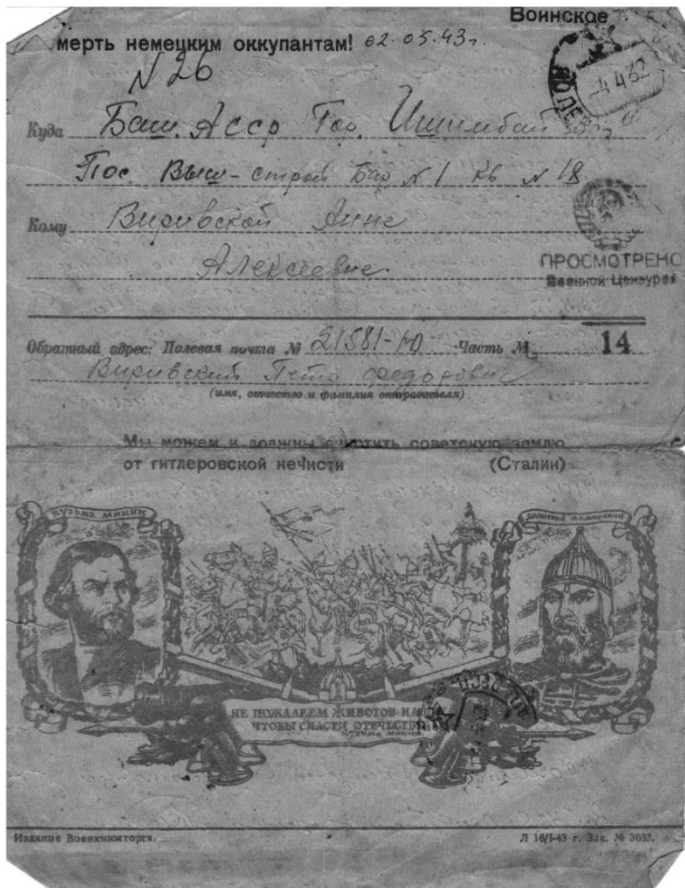 Воинское
мерть немецким оккупантам! 02.03.43г.
N 26
4 4 32
Куда Баш. Асср Гор. Ишимбай
Пос. Выш-строй Бар N 1 кв N 18
Кому Виривской Анне
Алексеевне.
ПРОСМОТРЕНО
Военной Цензурой
14
Обратный адрес: Полевая почта № 21581-Ю Часть
Виривский Петр Федорович
(имя, отчество и фамилия отправителя)
Мы можем и должны очистить советскую землю
от гитлеровской нечисти (Сталин)
КУЗЬМА МИНИН
НЕ ПОЖАЛЕЕМ ЖИВОТОВ
ЧТОБЫ СПАСТИ ОТЕЧЕСТВО
КУЗЬМА МИНИН
Издание Воениздаторга. Л 16/I-43 г. Зак. № 3033.